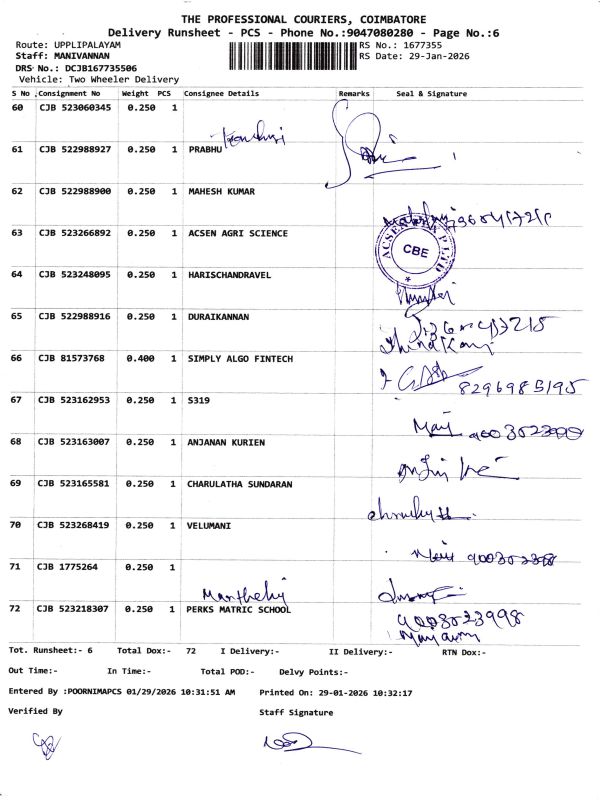 THE PROFESSIONAL COURIERS, COIMBATORE
Delivery Runsheet - PCS - Phone No.:9047080280 - Page No.:6
Route: UPPLIPALAYAM RS No.: 1677355
Staff: MANIVANNAN RS Date: 29-Jan-2026
DRS No.: DCJB167735506
Vehicle: Two Wheeler Delivery
S No Consignment No Weight PCS Consignee Details Remarks Seal & Signature
60 CJB 523060345 0.250 1
61 CJB 522988927 0.250 1 PRABHU
62 CJB 522988900 0.250 1 MAHESH KUMAR
63 CJB 523266892 0.250 1 ACSEN AGRI SCIENCE
CBE
64 CJB 523248095 0.250 1 HARISCHANDRAVEL
65 CJB 522988916 0.250 1 DURAIKANNAN
66 CJB 81573768 0.400 1 SIMPLY ALGO FINTECH
8296985195
67 CJB 523162953 0.250 1 S319
68 CJB 523163007 0.250 1 ANJANAN KURIEN
69 CJB 523165581 0.250 1 CHARULATHA SUNDARAN
70 CJB 523268419 0.250 1 VELUMANI
71 CJB 1775264 0.250 1
72 CJB 523218307 0.250 1 PERKS MATRIC SCHOOL
Tot. Runsheet:- 6 Total Dox:- 72 I Delivery:- II Delivery:- RTN Dox:-
Out Time:- In Time:- Total POD:- Delvy Points:-
Entered By :POORNIMAPCS 01/29/2026 10:31:51 AM Printed On: 29-01-2026 10:32:17
Verified By Staff Signature